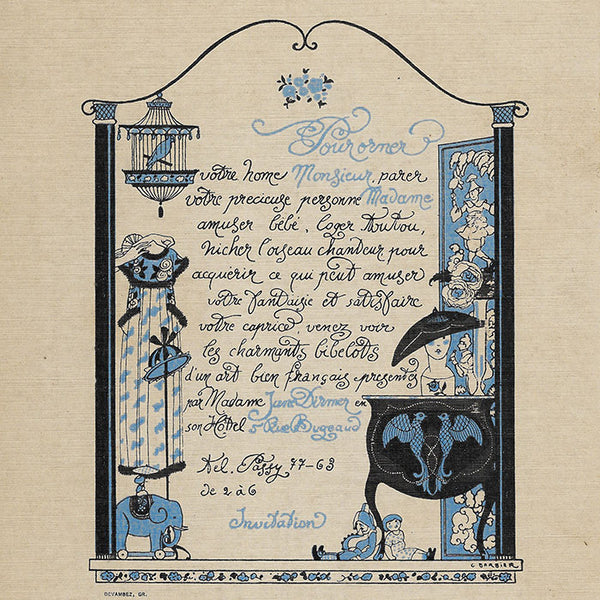 Pour orner
votre home Monsieur, parer
votre precieuse personne Madame
amuser bébé, loger toutou,
nicher l'oiseau chanteur pour
acquerir ce qui peut amuser
votre fantaisie et satisfaire
votre caprice, venez voir
les charmants bibelots
d'un art bien français presentés
par Madame Jane Dirmer en
son Hôtel 5 Rue Bugeaud
Tel. Passy 77-63
de 2 à 6
Invitation
G BARBIER
DEVAMBEZ, GR.